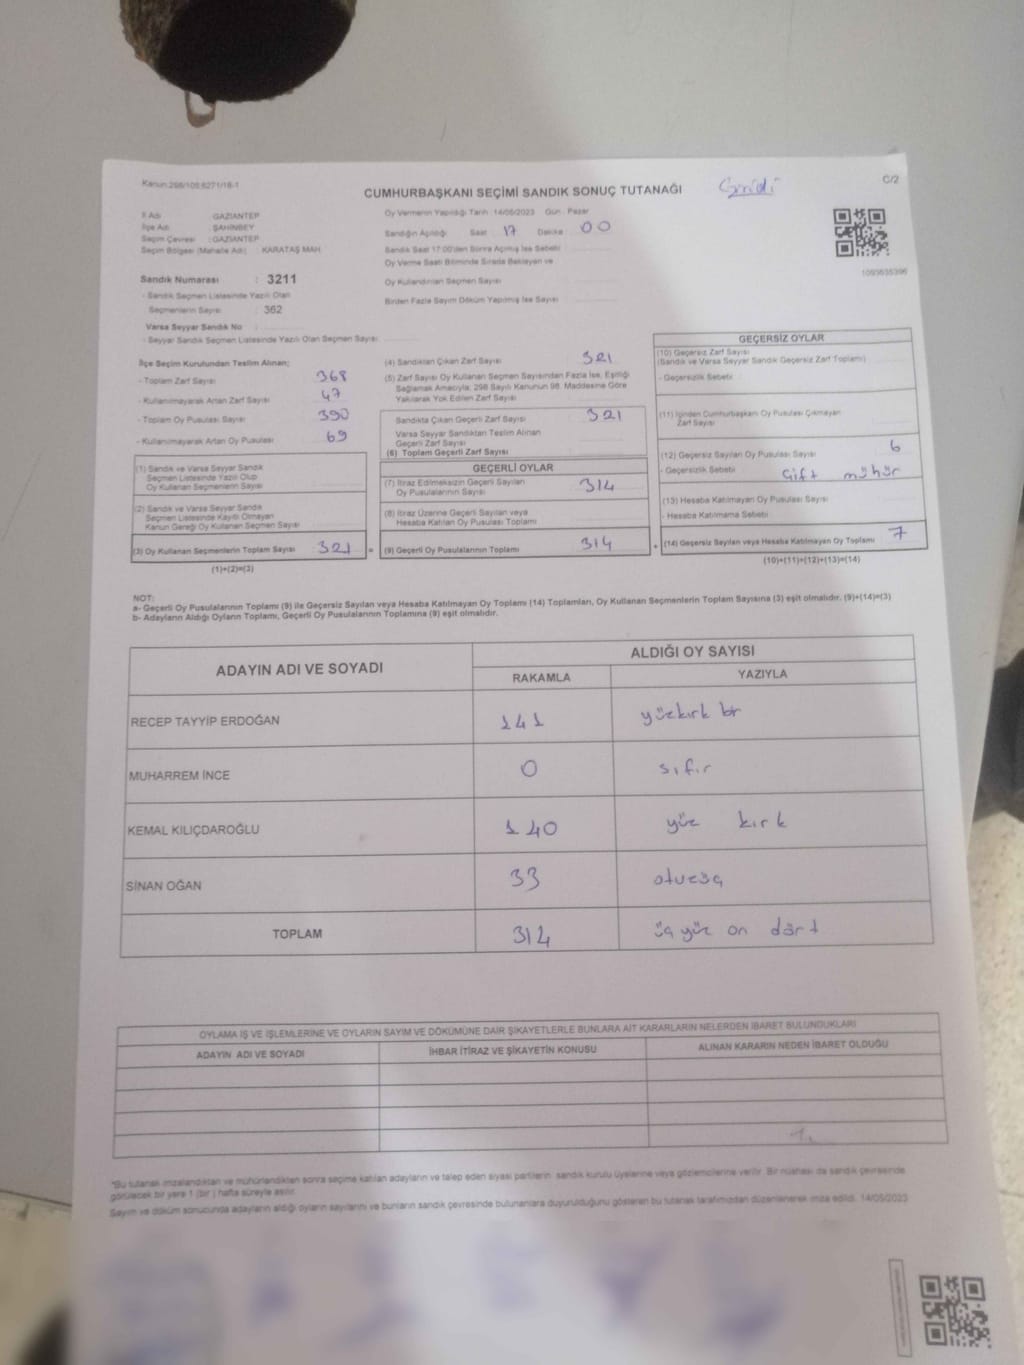 Kanun:298/105;6271/18-1
C/2
CUMHURBAŞKANI SEÇİMİ SANDIK SONUÇ TUTANAĞI
İl Adı : GAZİANTEP
İlçe Adı : ŞAHİNBEY
Seçim Çevresi : GAZİANTEP
Seçim Bölgesi (Mahalle Adı) : KARATAŞ MAH
Sandık Numarası : 3211
- Sandık Seçmen Listesinde Yazılı Olan
Seçmenlerin Sayısı : 362
Varsa Seyyar Sandık No :
- Seyyar Sandık Seçmen Listesinde Yazılı Olan Seçmen Sayısı:
Oy Vermenin Yapıldığı Tarih :14/05/2023 Gün : Pazar
Sandığın Açıldığı Saat 17 Dakika 00
Sandık Saat 17:00'den Sonra Açılmış İse Sebebi :
Oy Verme Saati Bitiminde Sırada Bekleyen ve
Oy Kullandırılan Seçmen Sayısı
Birden Fazla Sayım Döküm Yapılmış İse Sayısı :
İlçe Seçim Kurulundan Teslim Alınan;
- Toplam Zarf Sayısı 368
- Kullanılmayarak Artan Zarf Sayısı 47
- Toplam Oy Pusulası Sayısı 390
- Kullanılmayarak Artan Oy Pusulası 69
(1) Sandık ve Varsa Seyyar Sandık
Seçmen Listesinde Yazılı Olup
Oy Kullanan Seçmenlerin Sayısı
(2) Sandık ve Varsa Seyyar Sandık
Seçmen Listesinde Kayıtlı Olmayan
Kanun Gereği Oy Kullanan Seçmen Sayısı
(3) Oy Kullanan Seçmenlerin Toplam Sayısı 321 =
(1)+(2)=(3)
(4) Sandıktan Çıkan Zarf Sayısı 321
(5) Zarf Sayısı Oy Kullanan Seçmen Sayısından Fazla İse, Eşitliği
Sağlamak Amacıyla; 298 Sayılı Kanunun 98. Maddesine Göre
Yakılarak Yok Edilen Zarf Sayısı
Sandıkta Çıkan Geçerli Zarf Sayısı 321
Varsa Seyyar Sandıktan Teslim Alınan
Geçerli Zarf Sayısı
(6) Toplam Geçerli Zarf Sayısı
GEÇERLİ OYLAR
(7) İtiraz Edilmeksizin Geçerli Sayılan
Oy Pusulalarının Sayısı 314
(8) İtiraz Üzerine Geçerli Sayılan veya
Hesaba Katılan Oy Pusulası Toplamı
(9) Geçerli Oy Pusulalarının Toplamı 314 +
GEÇERSİZ OYLAR
(10) Geçersiz Zarf Sayısı
(Sandık ve Varsa Seyyar Sandık Geçersiz Zarf Toplamı)
- Geçersizlik Sebebi
(11) İçinden Cumhurbaşkanı Oy Pusulası Çıkmayan
Zarf Sayısı
(12) Geçersiz Sayılan Oy Pusulası Sayısı 6
- Geçersizlik Sebebi Çift mühür
(13) Hesaba Katılmayan Oy Pusulası Sayısı
- Hesaba Katılmama Sebebi
(14) Geçersiz Sayılan veya Hesaba Katılmayan Oy Toplamı 7
(10)+(11)+(12)+(13)=(14)
NOT:
a- Geçerli Oy Pusulalarının Toplamı (9) ile Geçersiz Sayılan veya Hesaba Katılmayan Oy Toplamı (14) Toplamları, Oy Kullanan Seçmenlerin Toplam Sayısına (3) eşit olmalıdır. (9)+(14)=(3)
b- Adayların Aldığı Oyların Toplamı, Geçerli Oy Pusulalarının Toplamına (9) eşit olmalıdır.
ADAYIN ADI VE SOYADI ALDIĞI OY SAYISI
RAKAMLA YAZIYLA
RECEP TAYYİP ERDOĞAN 141 yüzkırk bir
MUHARREM İNCE 0 sıfır
KEMAL KILIÇDAROĞLU 140 yüz kırk
SİNAN OĞAN 33 otuzüç
TOPLAM 314 üç yüz on dört
OYLAMA İŞ VE İŞLEMLERİNE VE OYLARIN SAYIM VE DÖKÜMÜNE DAİR ŞİKAYETLERLE BUNLARA AİT KARARLARIN NELERDEN İBARET BULUNDUKLARI
ADAYIN ADI VE SOYADI İHBAR İTİRAZ VE ŞİKAYETİN KONUSU ALINAN KARARIN NEDEN İBARET OLDUĞU
*Bu tutanak imzalandıktan ve mühürlendikten sonra seçime katılan adayların ve talep eden siyasi partilerin sandık kurulu üyelerine veya gözlemcilerine verilir. Bir nüshası da sandık çevresinde
görülecek bir yere 1 (bir ) hafta süreyle asılır.
Sayım ve döküm sonucunda adayların aldığı oyların sayılarını ve bunların sandık çevresinde bulunanlara duyurulduğunu gösteren bu tutanak tarafımızdan düzenlenerek imza edildi. 14/05/2023